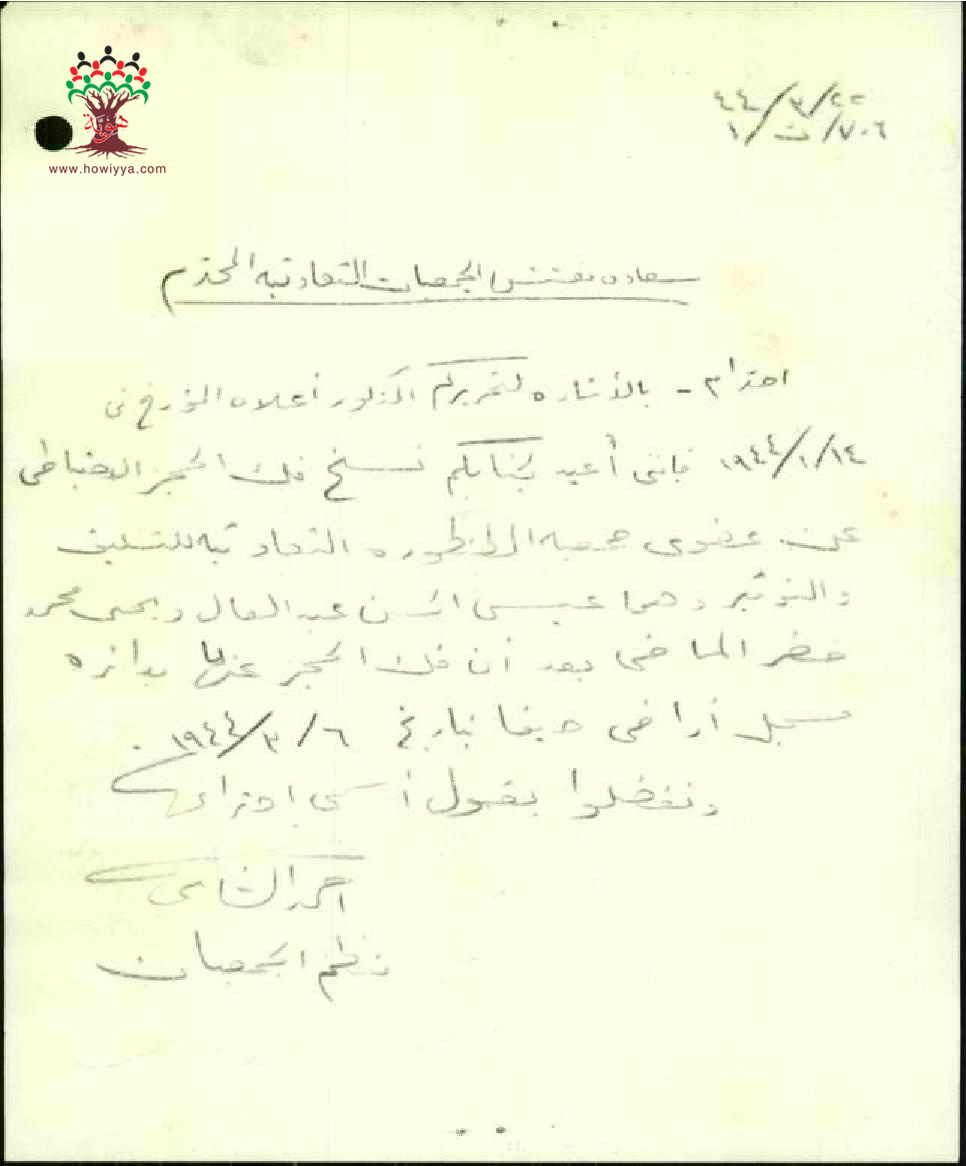 هوية
www.howiyya.com
٤٤/٣/٢٢
٧٠٦/ت/١
سعادة مفتش الجمعيات التعاونيه المحترم
احتراما - بالأشاره لتحريركم المذكور أعلاه المؤرخ في
١٩٤٤/١/١٤ فإنني أعيد لجنابكم نسخ فك الحجز الاحتياطي
عن عضوي جمعية الطنطوره التعاونيه للتسليف
والتوفير وهما عيسى الحسن عبد العال ويحيى محمد
خضر الماضي بعد أن فك الحجز عنها بدائره
مسجل أراضي حيفا بتاريخ ٦/٣/١٩٤٤.
وتفضلوا بقبول أسمى احترامي
احمد
منظم الجمعيات